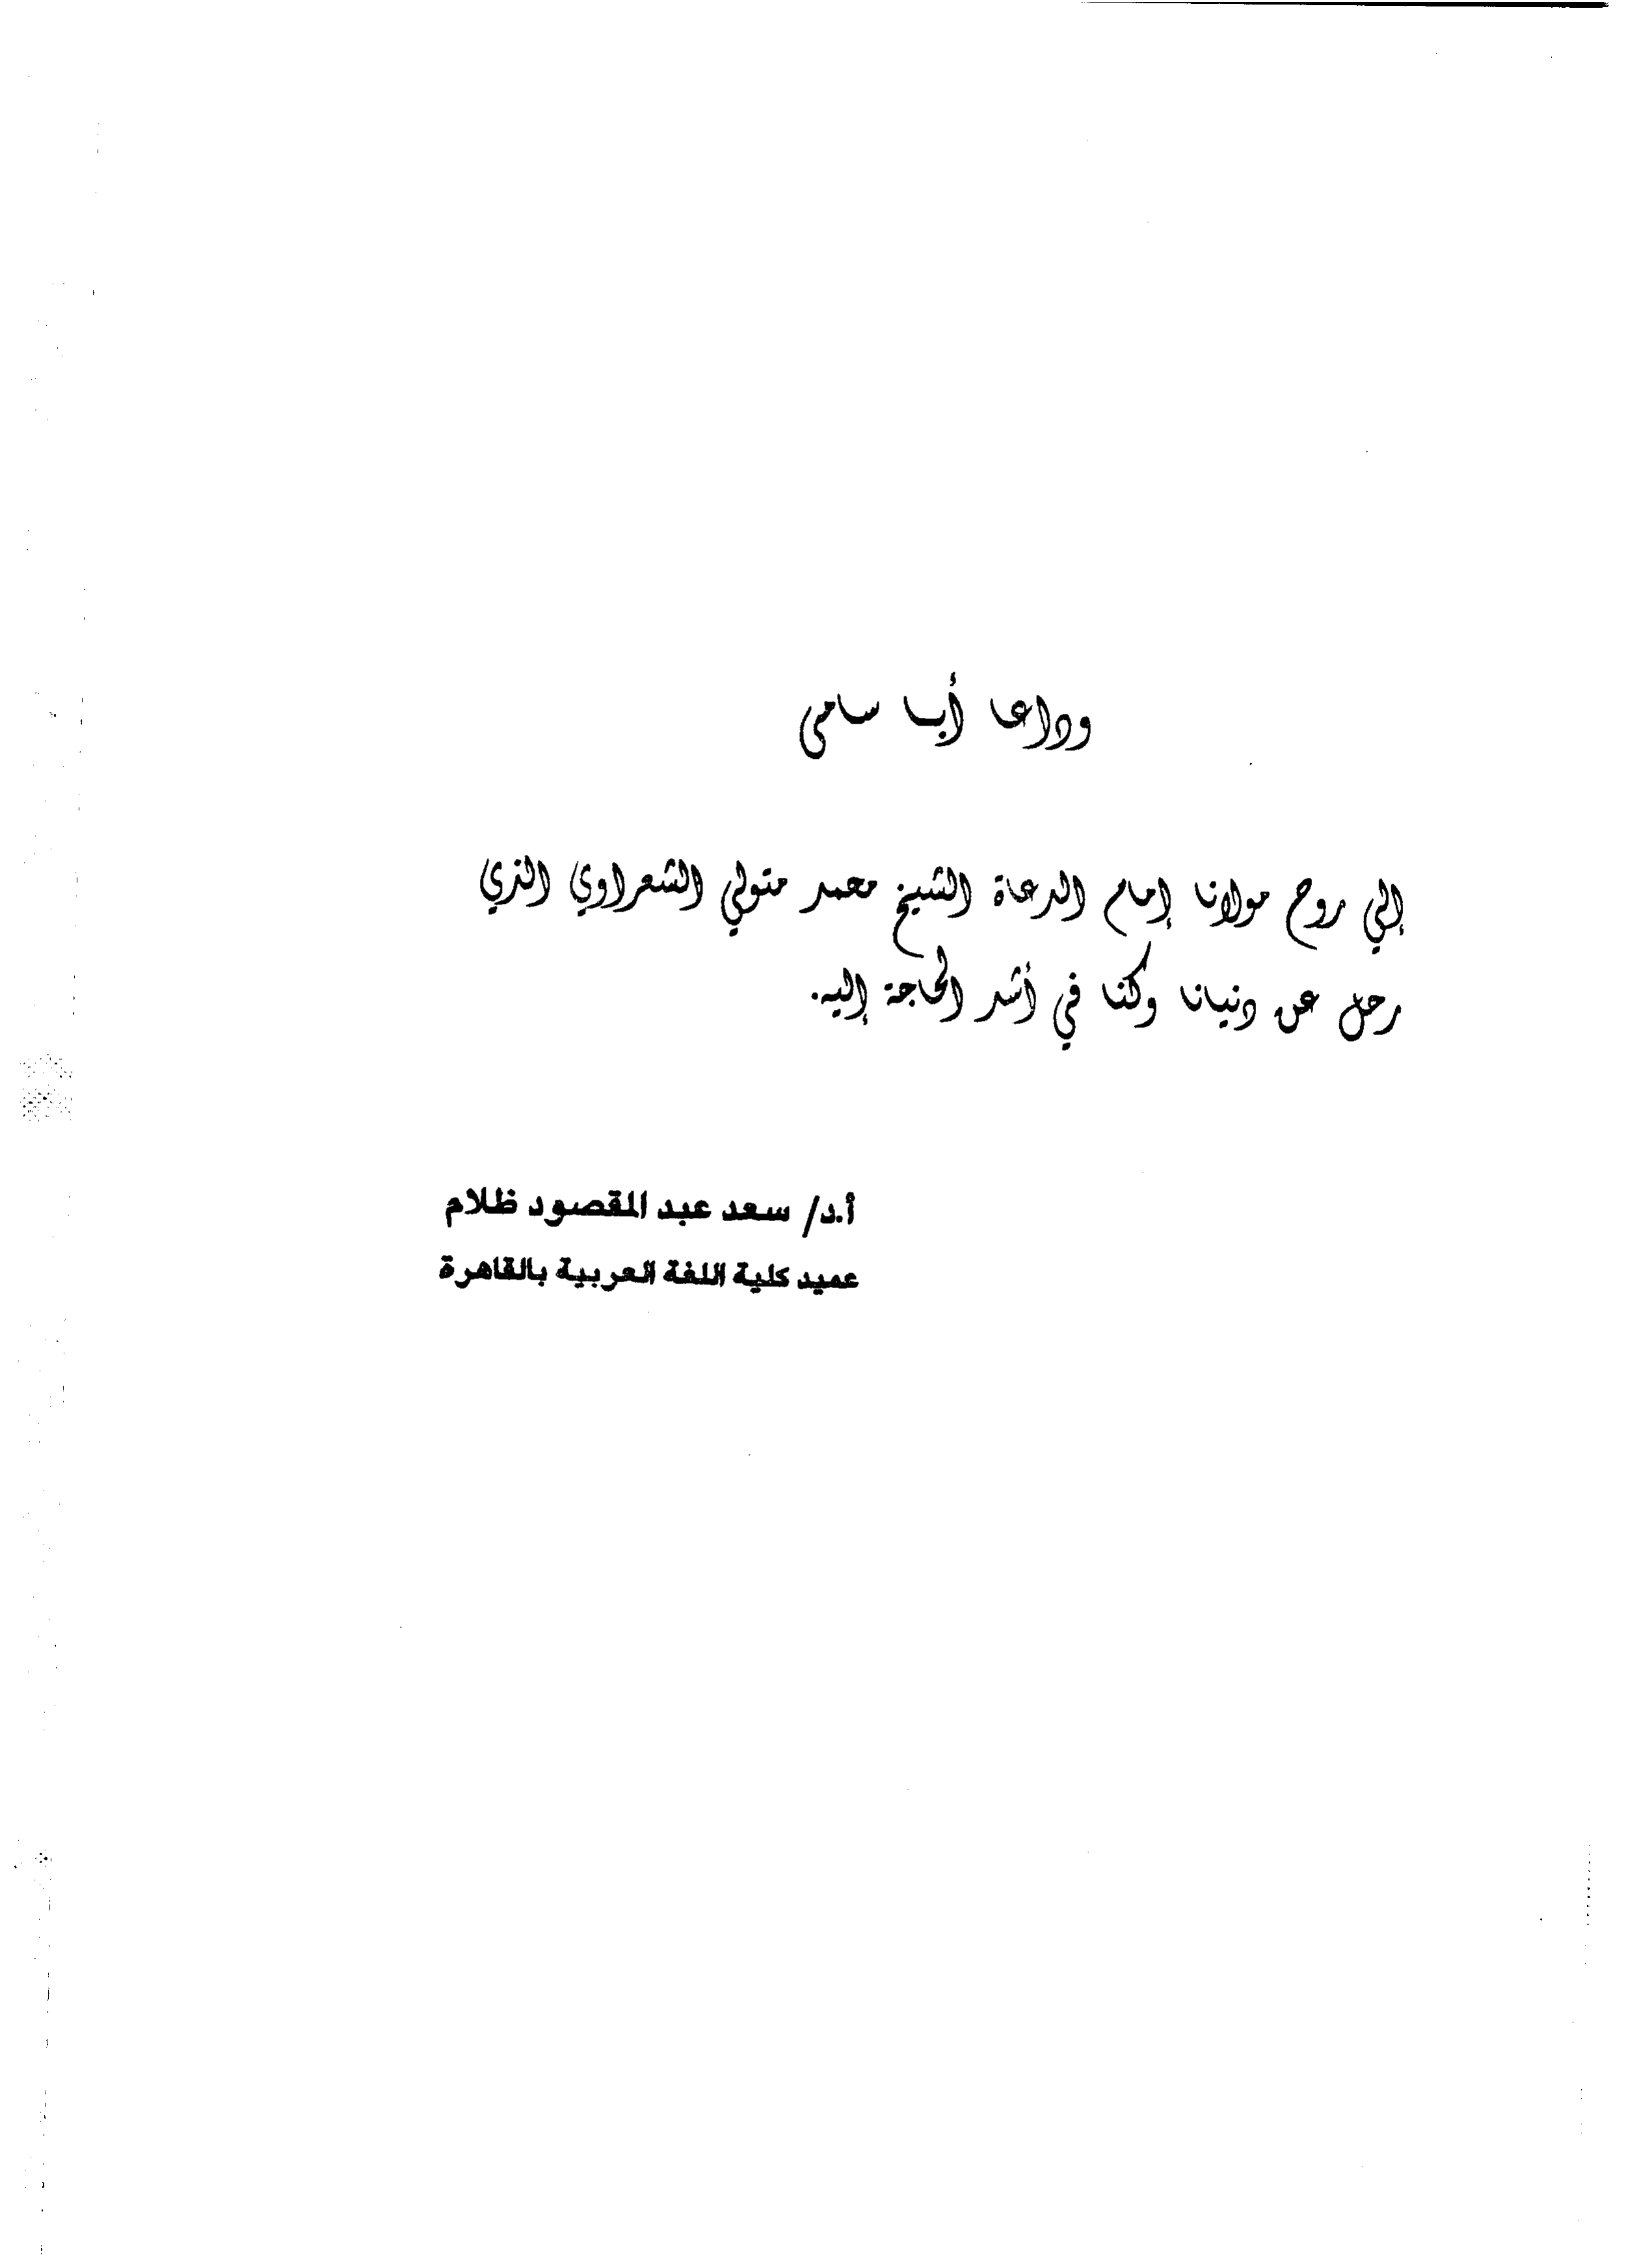 وداعا أبا سامى
إلي روح مولانا إمام الدعاة الشيخ محمد متولي الشعراوي الذي
رحل عن دنيانا وكنا في أشد الحاجة إليه.
أ.د/ سعد عبد المقصود ظلام
عميد كلية اللغة العربية بالقاهرة